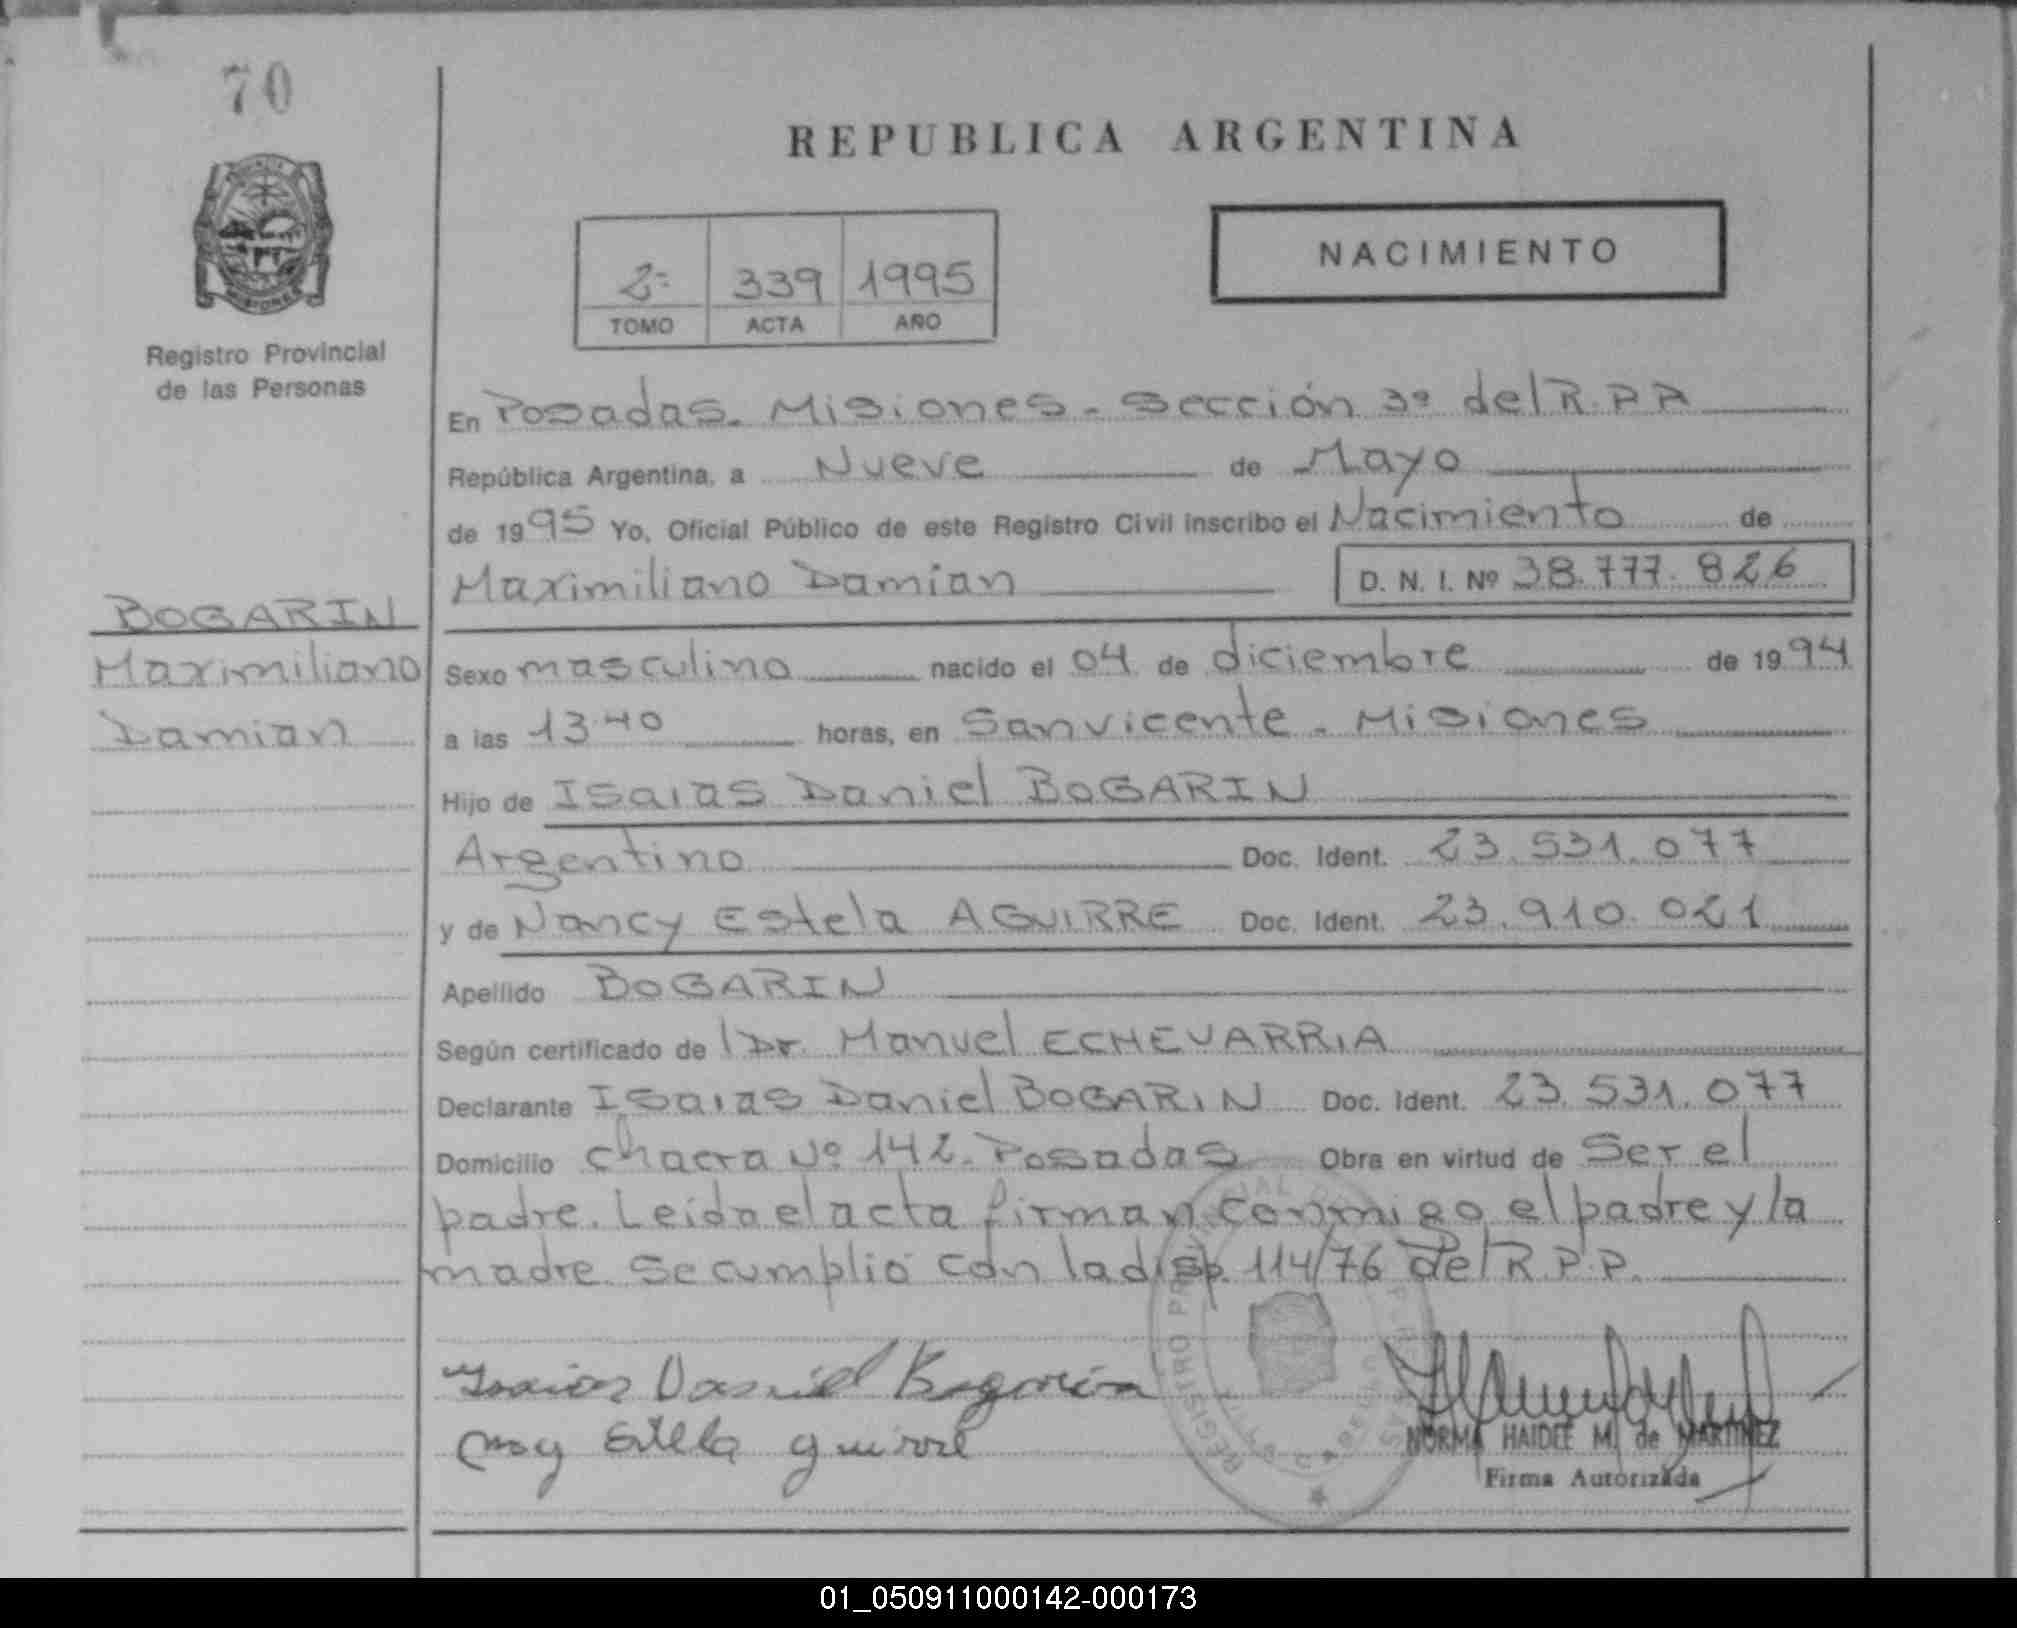 70
MISIONES
Registro Provincial
de las Personas
BOGARIN
Maximiliano
Damian
REPUBLICA ARGENTINA
2º 339 1995
TOMO ACTA AÑO
NACIMIENTO
En Posadas. Misiones - Sección 3ª del R.P.P.
República Argentina, a Nueve de Mayo
de 1995 Yo, Oficial Público de este Registro Civil inscribo el Nacimiento de
Maximiliano Damian D. N. I. Nº 38.777.826
Sexo masculino nacido el 04 de diciembre de 1994
a las 13.40 horas, en San vicente - Misiones
Hijo de Isaias Daniel BOGARIN
Argentino Doc. Ident. 23.531.077
y de Nancy Estela AGUIRRE Doc. Ident. 23.910.021
Apellido BOGARIN
Según certificado de l Dr. Manuel ECHEVARRIA
Declarante Isaias Daniel BOGARIN Doc. Ident. 23.531.077
Domicilio chacra Nº 142. Posadas Obra en virtud de Ser el
padre. Leída el acta firman conmigo el padre y la
madre. Se cumplió con la disp. 114/76 del R.P.P.
Isaias Daniel Bogarin
Estela
REGISTRO
NORMA HAIDEE M. de MARTINEZ
Firma Autorizada
01_050911000142-000173